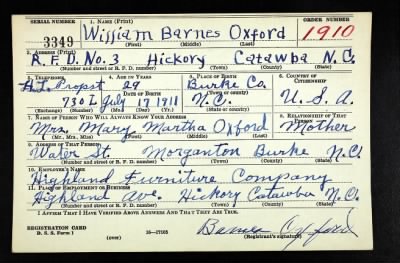 SERIAL NUMBER 1. NAME (Print) ORDER NUMBER
3349 William Barnes Oxford 1910
(First) (Middle) (Last)
2. ADDRESS (Print)
R.F.D. No. 3 Hickory Catawba N.C.
(Number and street or R. F. D. number) (Town) (County) (State)
3. TELEPHONE 4. AGE IN YEARS 5. PLACE OF BIRTH 6. COUNTRY OF CITIZENSHIP
At. Propst 29 Burke Co.
DATE OF BIRTH (Town or county)
730 L July 17 1911 N.C. U.S.A.
(Exchange) (Number) (Mo.) (Day) (Yr.) (State or country)
7. NAME OF PERSON WHO WILL ALWAYS KNOW YOUR ADDRESS 8. RELATIONSHIP OF THAT PERSON
Mrs. Mary Martha Oxford Mother
(Mr., Mrs., Miss) (First) (Middle) (Last)
9. ADDRESS OF THAT PERSON
Water St. Morganton Burke N.C.
(Number and street or R. F. D. number) (Town) (County) (State)
10. EMPLOYER'S NAME
Highland Furniture Company
11. PLACE OF EMPLOYMENT OR BUSINESS
Highland Ave. Hickory Catawba N.C.
(Number and street or R. F. D. number) (Town) (County) (State)
I AFFIRM THAT I HAVE VERIFIED ABOVE ANSWERS AND THAT THEY ARE TRUE.
REGISTRATION CARD
D. S. S. Form 1 (over) 16—17105 Barnes Oxford
(Registrant's signature)